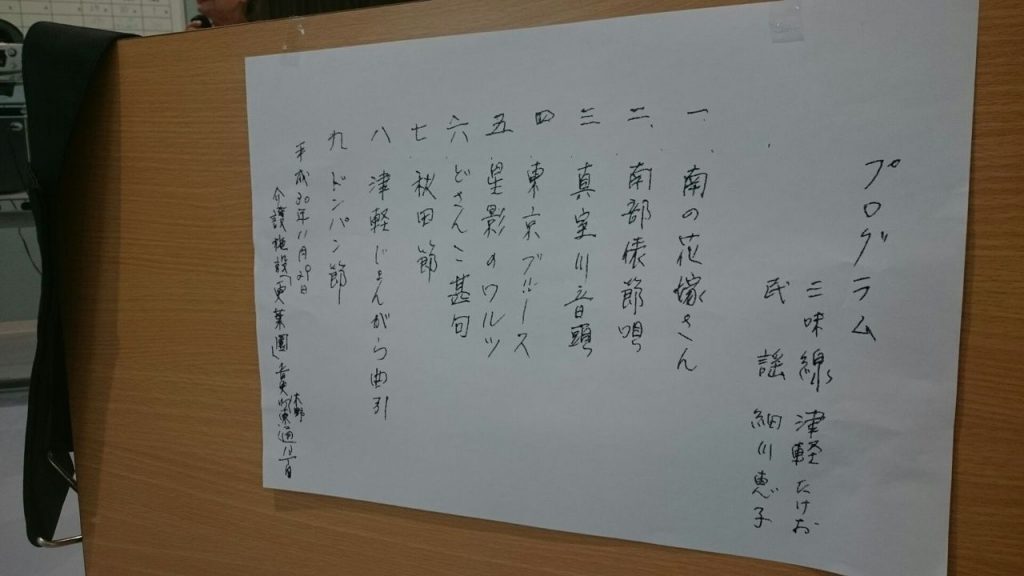 プログラム
三味線 津軽たけお
民謡 細川恵子
一、南の花嫁さん
二、南部俵節唄
三、真室川音頭
四、東京ブルース
五、星影のワルツ
六、どさんこ甚句
七、秋田節
八、津軽じょんがら曲引
九、ドンパン節
平成30年11月29日
介護施設「